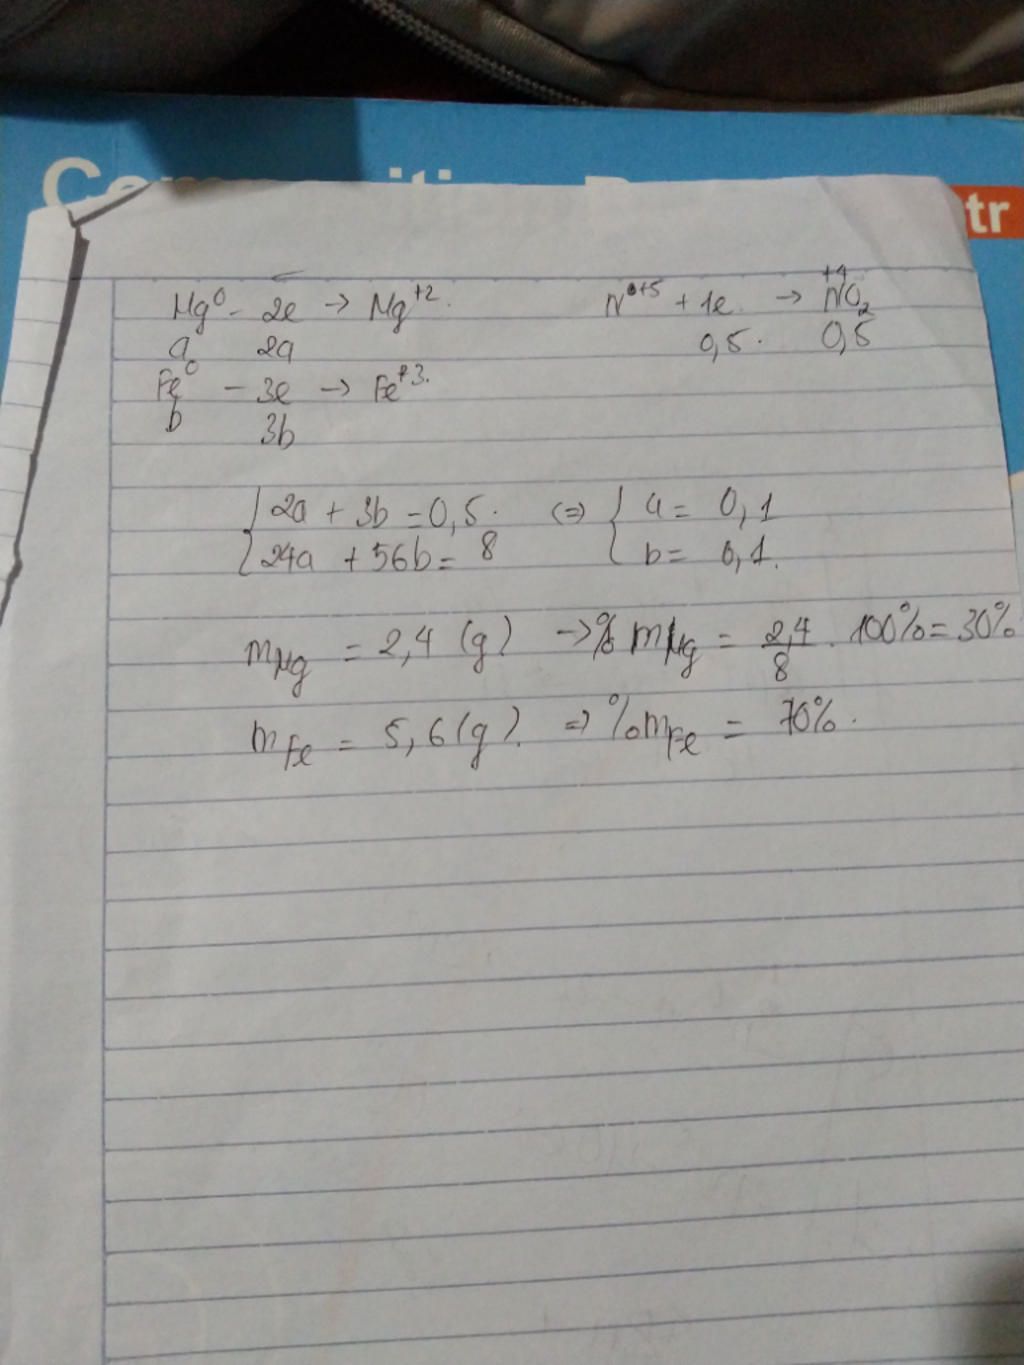 tr
Mg⁰ - 2e → Mg⁺². N⁺⁵ + 1e → N⁺⁴O₂
a 2a 0,5. 0,5
Fe⁰ - 3e → Fe⁺³.
b 3b
{ 2a + 3b = 0,5. (=) { a = 0,1
{ 24a + 56b = 8 { b = 0,1.
mMg = 2,4 (g) → % mMg = 2,4/8 . 100% = 30%
mFe = 5,6 (g). => %mFe = 70%.